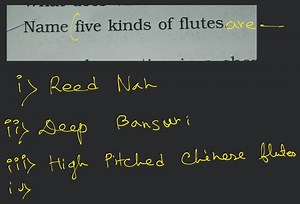 Name five kinds of flutes are —
i) Reed Nah
ii) Deep Bansuri
iii) High Pitched Chinese flutes
iv)